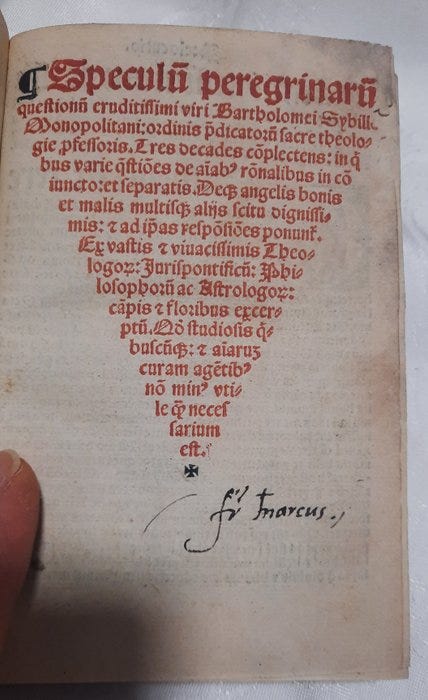 ¶ Speculū peregrinarū
questionū eruditissimi viri Bartholomei Sybille
Monopolitani: ordinis p̄dicatorū sacre theolo-
gie ꝓfessoris. Tres decades cōplectens: in q̄
bus varie q̄stiōes de aīab⁹ rōnalibus in cō
iuncto: et separatis. Deqꝫ angelis bonis
et malis multisqꝫ alijs scitu dignissi-
mis: ⁊ ad ip̄as respōsiōes ponunt᷑.
Ex vastis ⁊ viuacissimis Theo-
logoꝝ: Jurispontificū: Phi-
losophorū ac Astrologoꝝ:
cāpis ⁊ floribus excer-
ptū. Nō studiosis q̄-
buscūqꝫ: ⁊ aīarum
curam agētib⁹
nō min⁹ vti-
le qꝫ neces
sarium
est.
fr̄ Marcus.